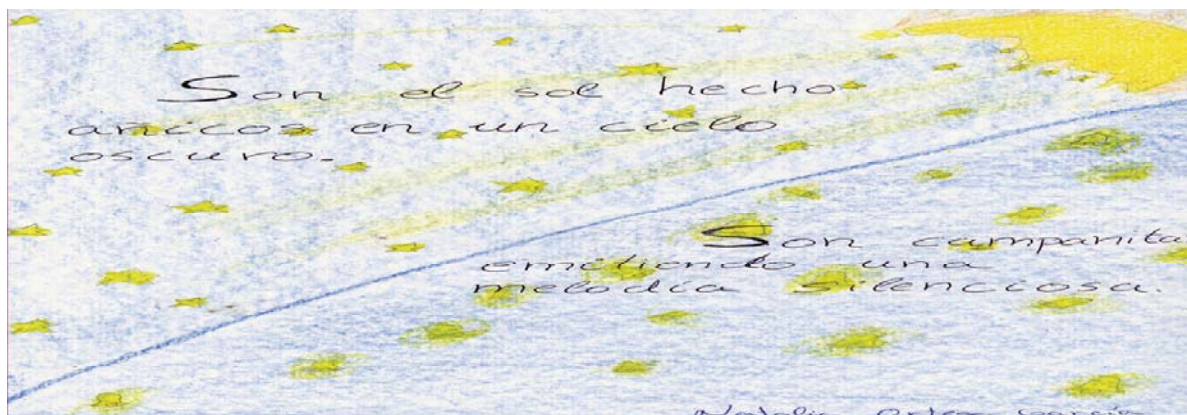 Son el sol hecho
añicos en un cielo
oscuro.
Son campanita
emitiendo una
melodía silenciosa.